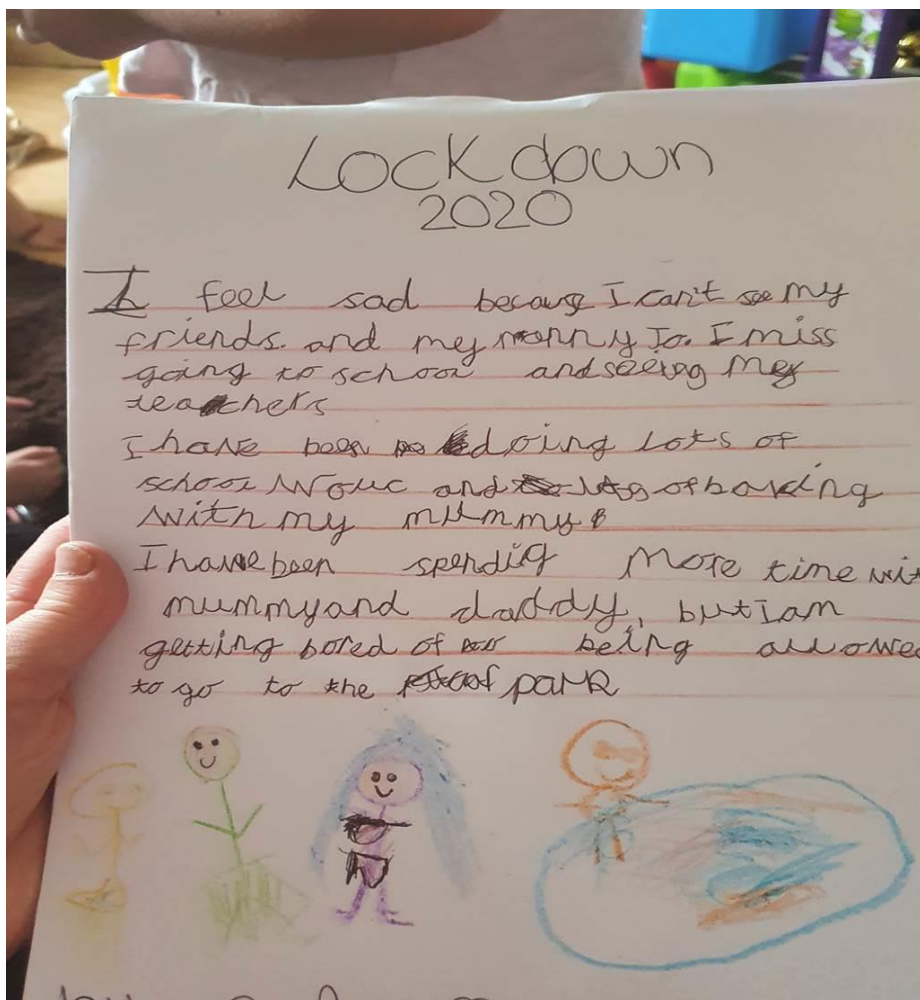 Lockdown
2020
I feel sad because I can't see my
friends. and my nanny Jo. I miss
going to school and seeing my
teachers
I have been doing lots of
school wouc and lots of baking
with my mummy
I have been spendig more time wit
mummy and daddy, but I am
getting bored of being allowe
to go to the park